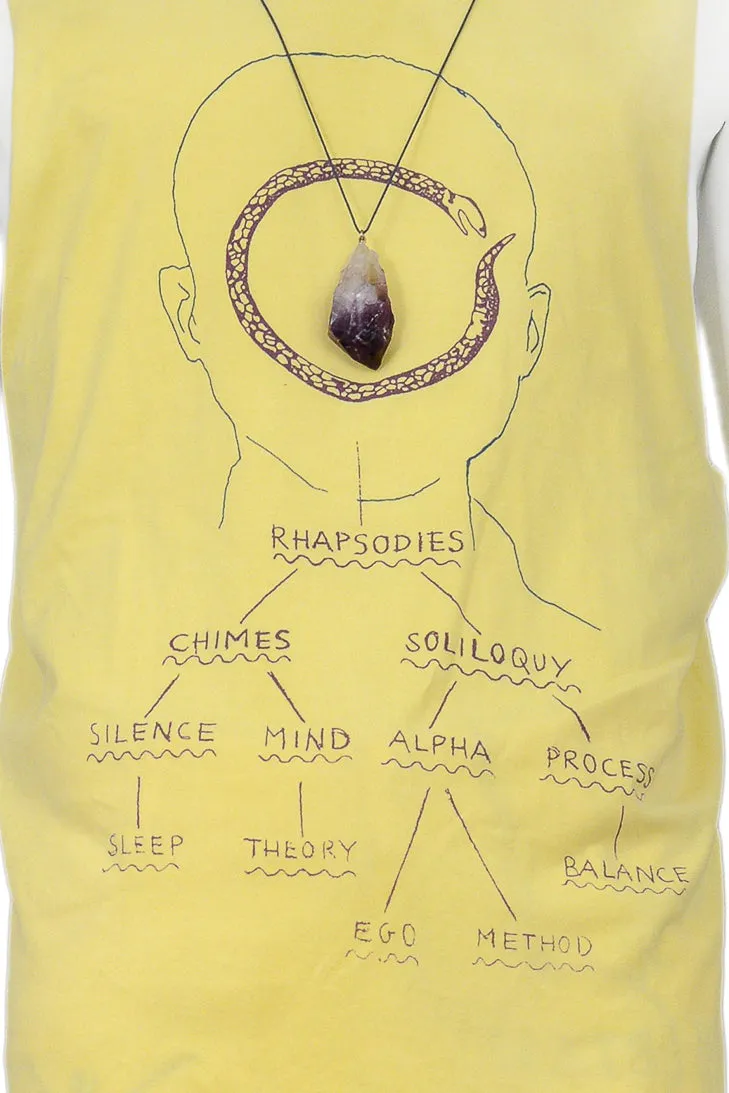 RHAPSODIES
CHIMES
SOLILOQUY
SILENCE
MIND
ALPHA
PROCESS
SLEEP
THEORY
BALANCE
EGO
METHOD